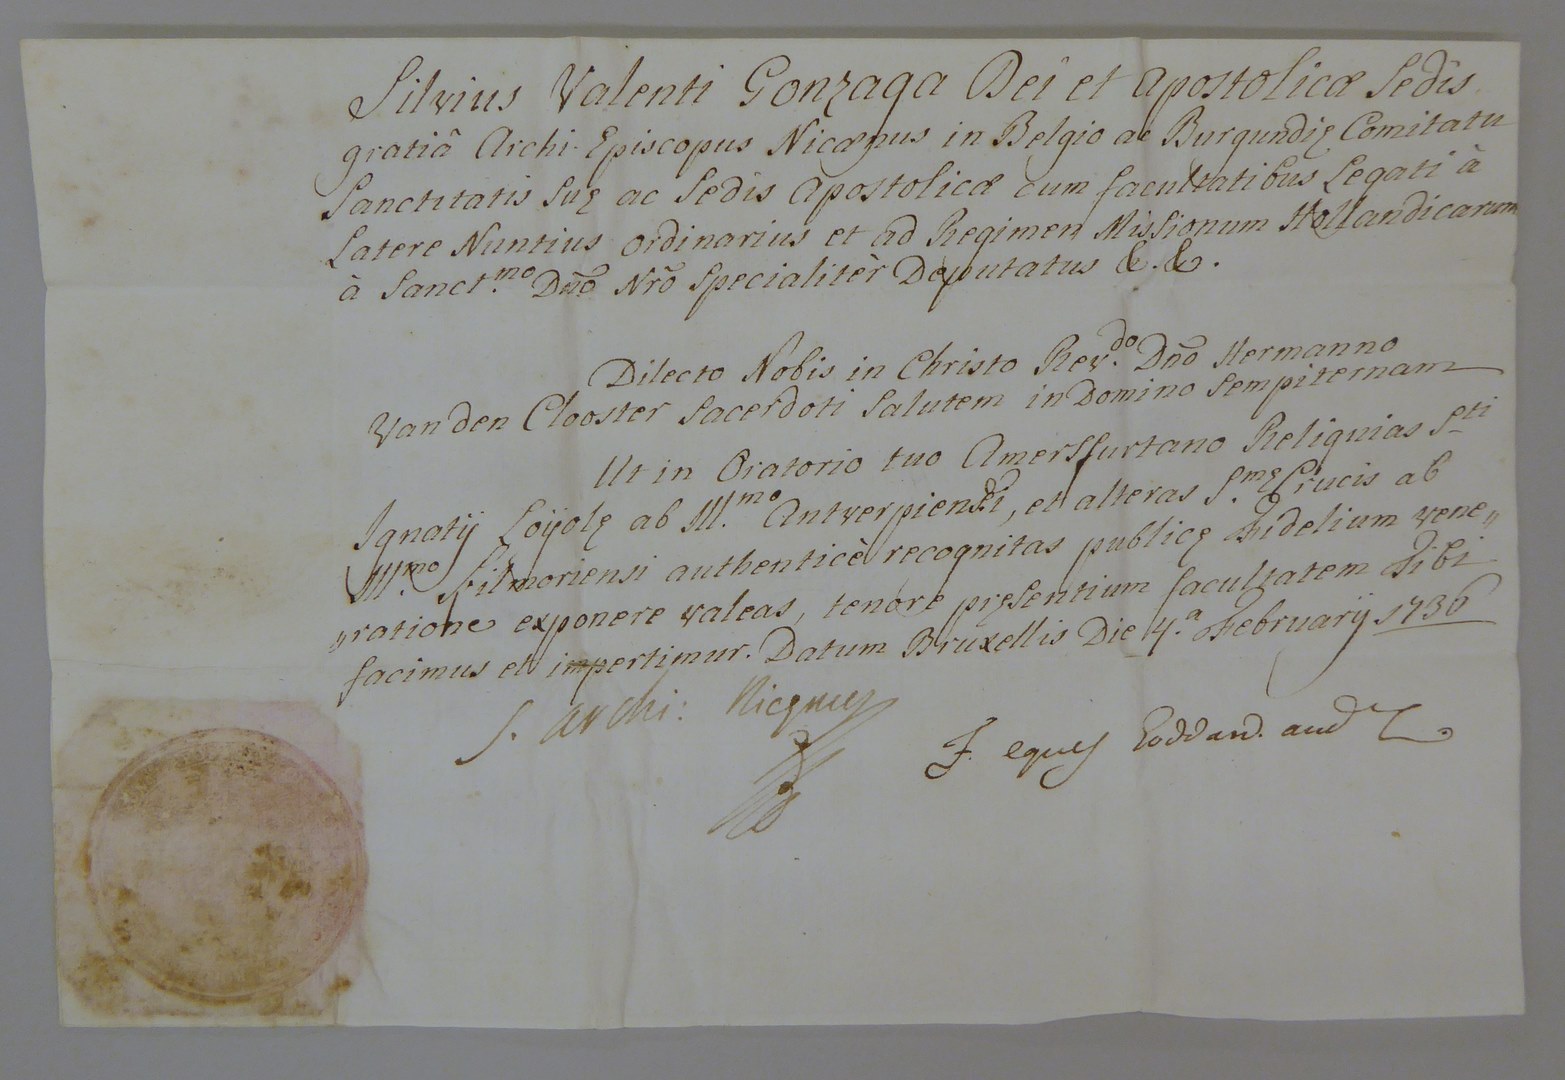 Silvius Valenti Gonzaga Dei et Apostolicæ Sedis
gratiâ Archi Episcopus Nicænus in Belgio ac Burgundię Comitatu
Sanctitatis Suę ac Sedis Apostolicæ cum facultatibus Legati à
Latere Nuntius ordinarius et ad Regimen Missionum Hollandicarum
à Sanct.mo Dño Nrõ Specialitèr Deputatus &.&.
Dilecto Nobis in Christo Rev.do Dño Hermanno
Van den Clooster Sacerdoti Salutem in Domino Sempiternam
Ut in Oratorio tuo Amersfurtano Reliquias S.ti
Ignatij Loÿolę ab Ill.mo Antverpiensi, et alteras S.mę Crucis ab
Ill.mo Filmoriensi authenticè recognitas publicę Fidelium vene„
„ratione exponere valeas, tenore pręsentium facultatem Tibi
facimus et impertimur. Datum Bruxellis Die 4.a Februarij 1736
S. Archi: Nicęnus
F. eques Goddard. aud.r